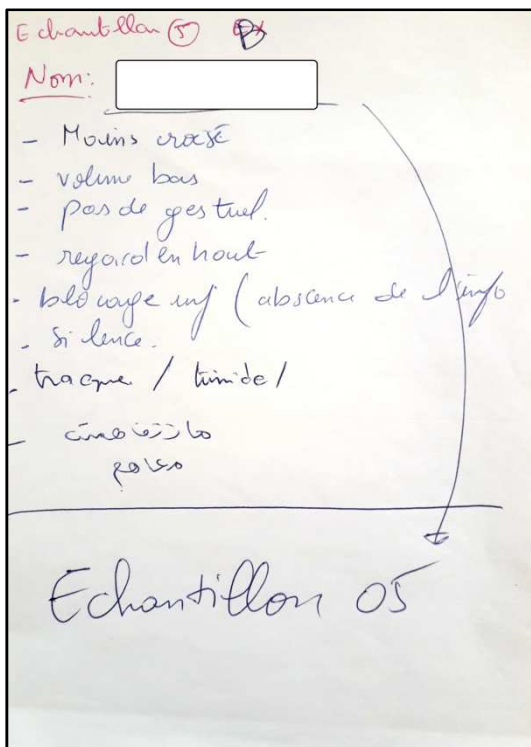 Echantillon 5
Nom:
- Mains croisé
- volume bas
- pas de gestuel.
- regard en haut
- blocage inf (abscence de l'info
- Silence.
- tracque / timide /
Echantillon 05